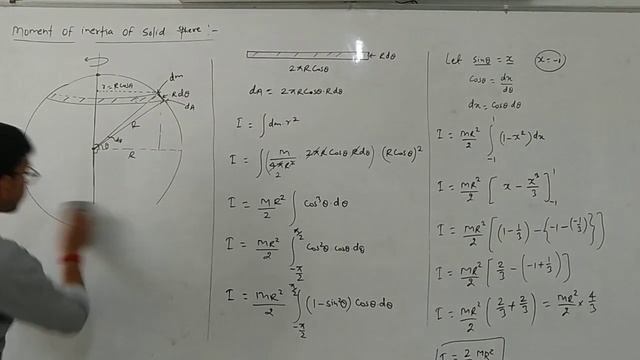 Moment of inertia of Solid Sphere :-
r = RcosA
dm
Rdθ
dA
R
dθ
θ
R
Rdθ
2πRcosθ
dA = 2πRcosθ·Rdθ
I = ∫dm·r²
I = ∫(m/4πR² 2πRcosθ Rdθ) (Rcosθ)²
2
I = mR²/2 ∫ cos³θ·dθ
I = mR²/2 ∫_{-π/2}^{π/2} cos²θ cosθ dθ
I = mR²/2 ∫_{-π/2}^{π/2} (1-sin²θ) cosθ dθ
Let sinθ = x
x = -1
cosθ = dx/dθ
dx = cosθ dθ
I = mR²/2 ∫_{-1}^{1} (1-x²)dx
I = mR²/2 [x - x³/3]_{-1}^{1}
I = mR²/2 [(1-1/3) - {-1-(-1/3)}]
I = mR²/2 [2/3 - (-1+1/3)]
I = mR²/2 (2/3 + 2/3) = mR²/2 × 4/3
I = 2/3 MR²